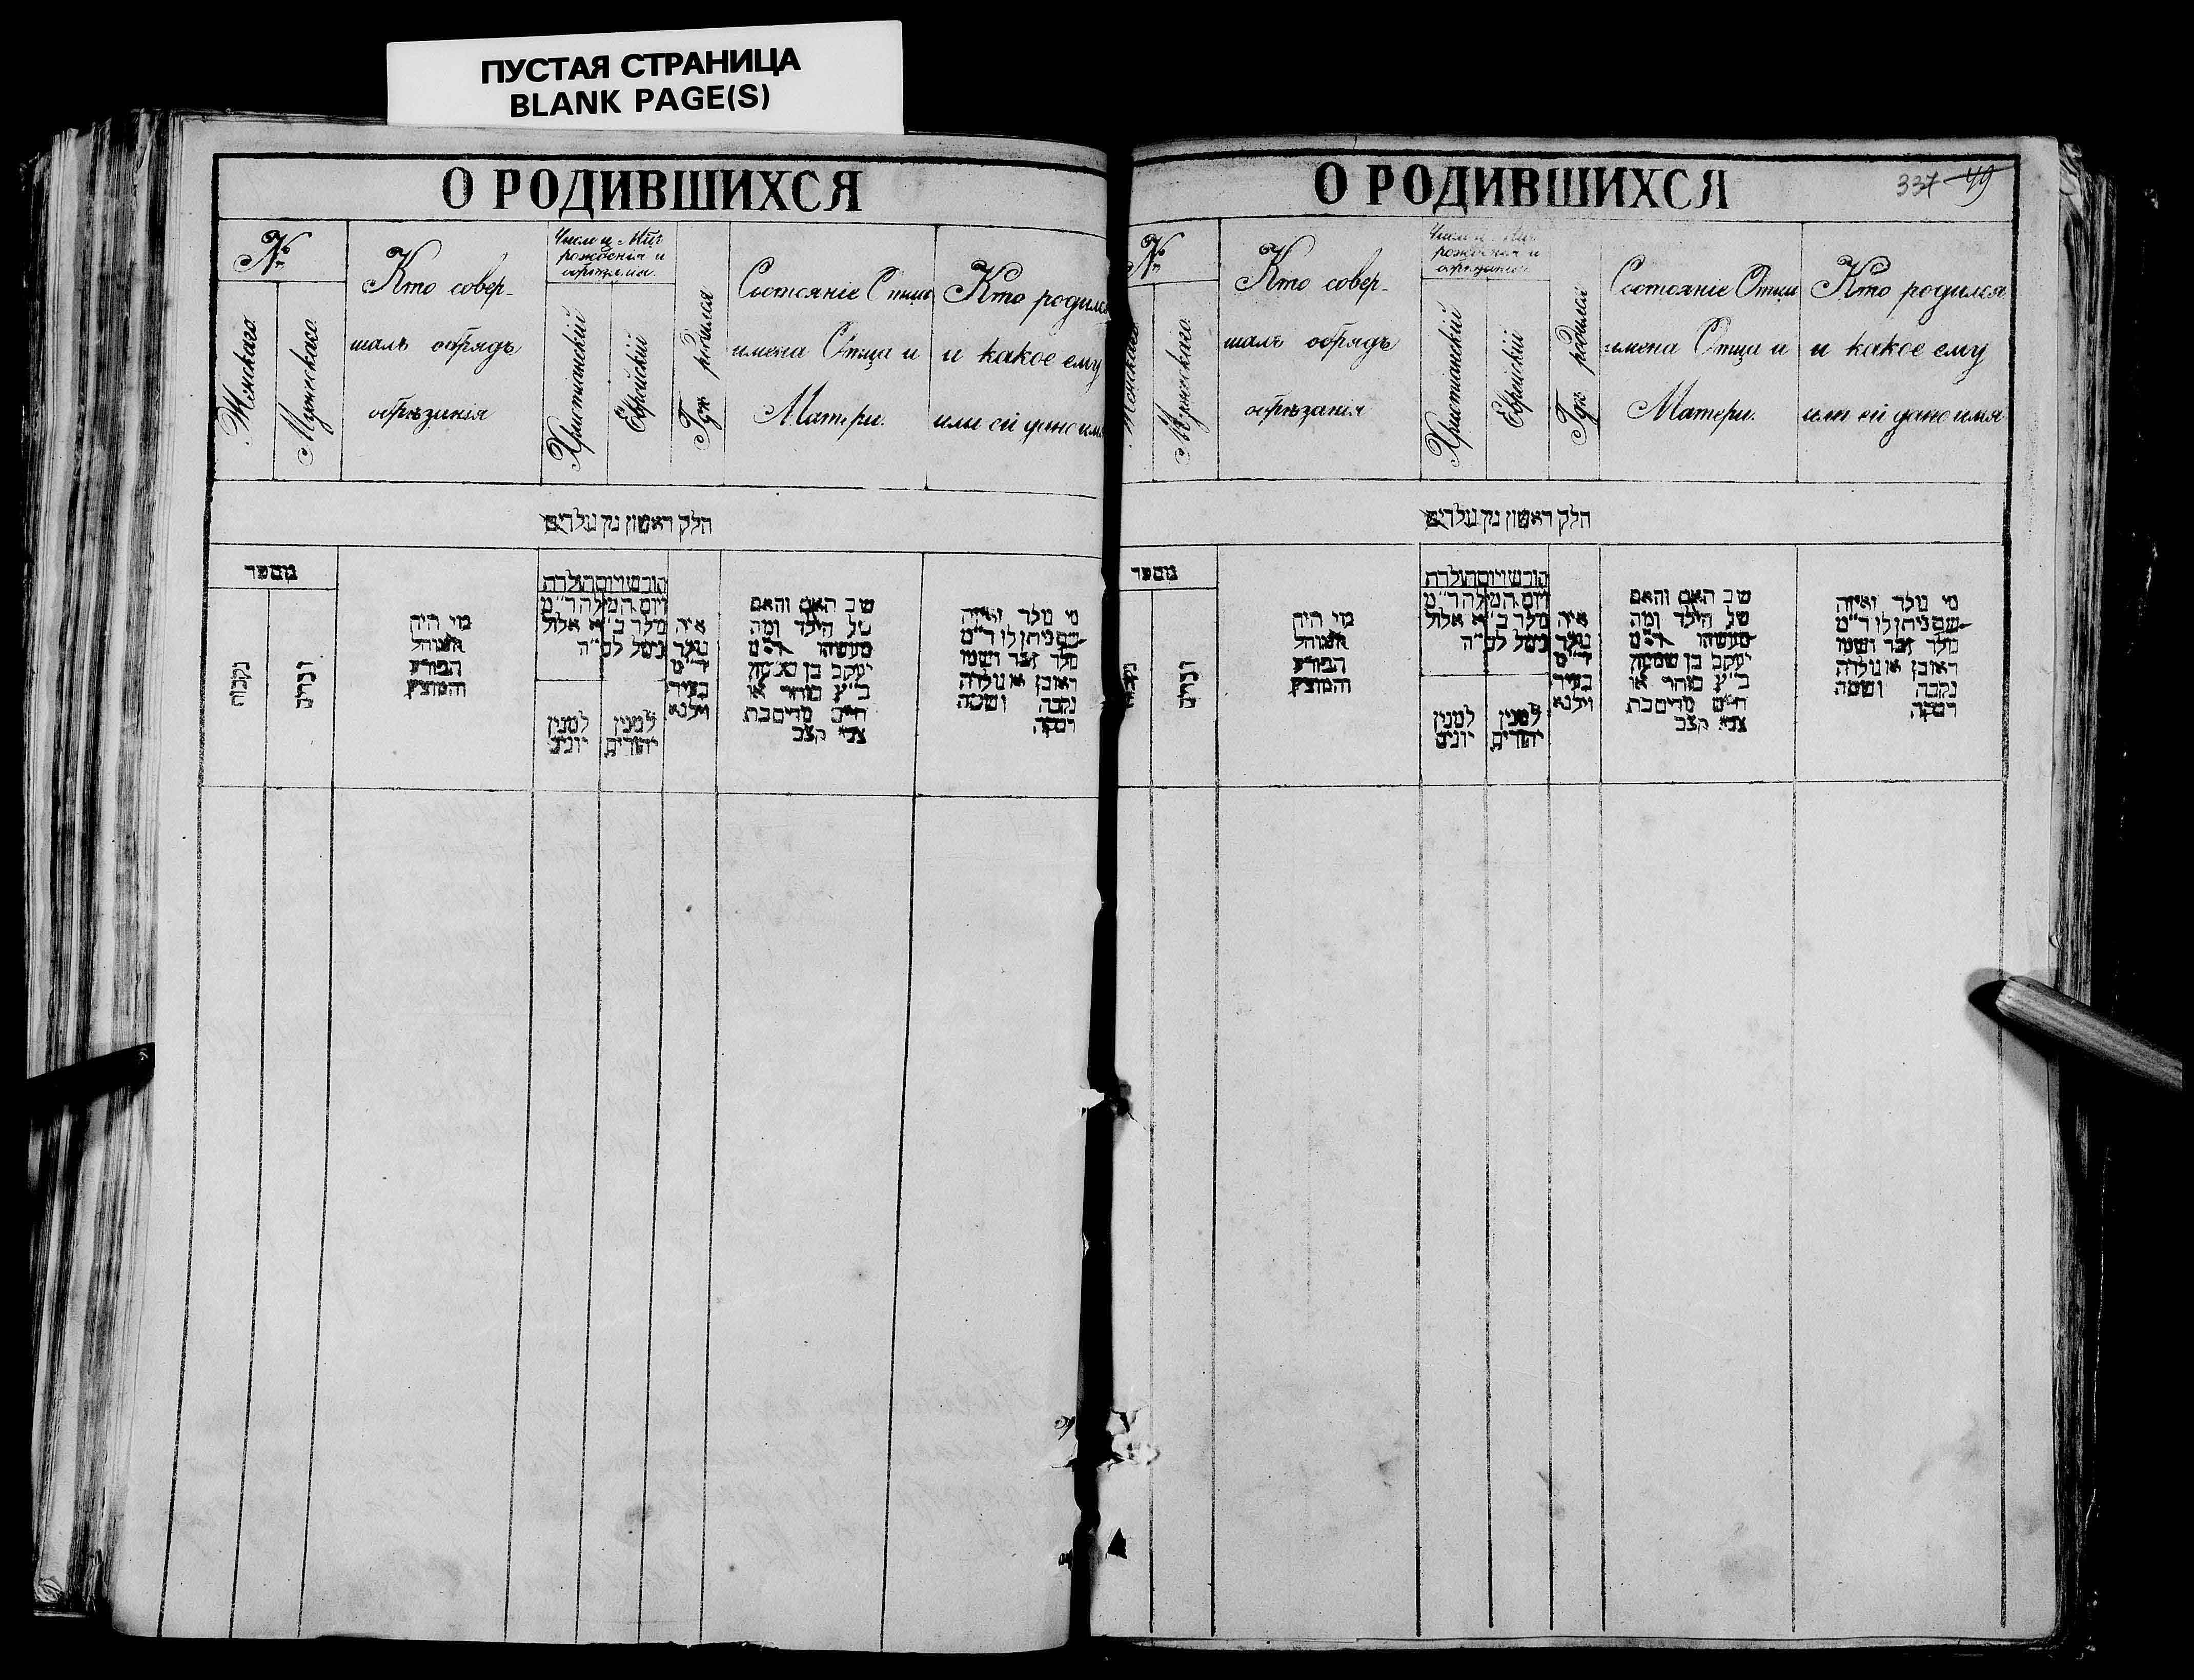 ПУСТАЯ СТРАНИЦА
BLANK PAGE(S)
О РОДИВШИХСЯ
№
Женскаго.
Мужескаго.
Кто совер-
шалъ обрядъ
обрѣзанія
Число и Мѣс.
рожденія и
обрѣзанія.
Христіанскій
Еврейскій
Гдѣ родился
Состояніе Отца
имена Отца и
Матери.
Кто родился
и какое ему
или ей дано имя
חלק ראשון מן נולדים
מספר
נקבות
זכרים
מי היה
המוהל
הפורע
והמוצץ
חודש ויום הולדת
ויום המילה ד״מ
נולד ב״א אלול
למנין
יונים
למנין
יהודים
איה
נולד
ד״מ
בעיר
ווילנא
שם האב והאם
של הילד ומה
מעשהו ד״מ
יעקב בן שמעון
כ״ץ סוחר או
חייט מרים בת
צבי קצב
מי נולד ואיזה
שם ניתן לו ד״מ
נולד זכר ושמו
ראובן או נולדה
נקבה ושמה
רבקה
О РОДИВШИХСЯ
337 49
№
Женскаго.
Мужескаго.
Кто совер-
шалъ обрядъ
обрѣзанія
Число и Мѣс.
рожденія и
обрѣзанія.
Христіанскій
Еврейскій
Гдѣ родился
Состояніе Отца
имена Отца и
Матери.
Кто родился
и какое ему
или ей дано имя
חלק ראשון מן נולדים
מספר
נקבות
זכרים
מי היה
המוהל
הפורע
והמוצץ
חודש ויום הולדת
ויום המילה ד״מ
נולד ב״א אלול
למנין
יונים
למנין
יהודים
איה
נולד
ד״מ
בעיר
ווילנא
שם האב והאם
של הילד ומה
מעשהו ד״מ
יעקב בן שמעון
כ״ץ סוחר או
חייט מרים בת
צבי קצב
מי נולד ואיזה
שם ניתן לו ד״מ
נולד זכר ושמו
ראובן או נולדה
נקבה ושמה
רבקה